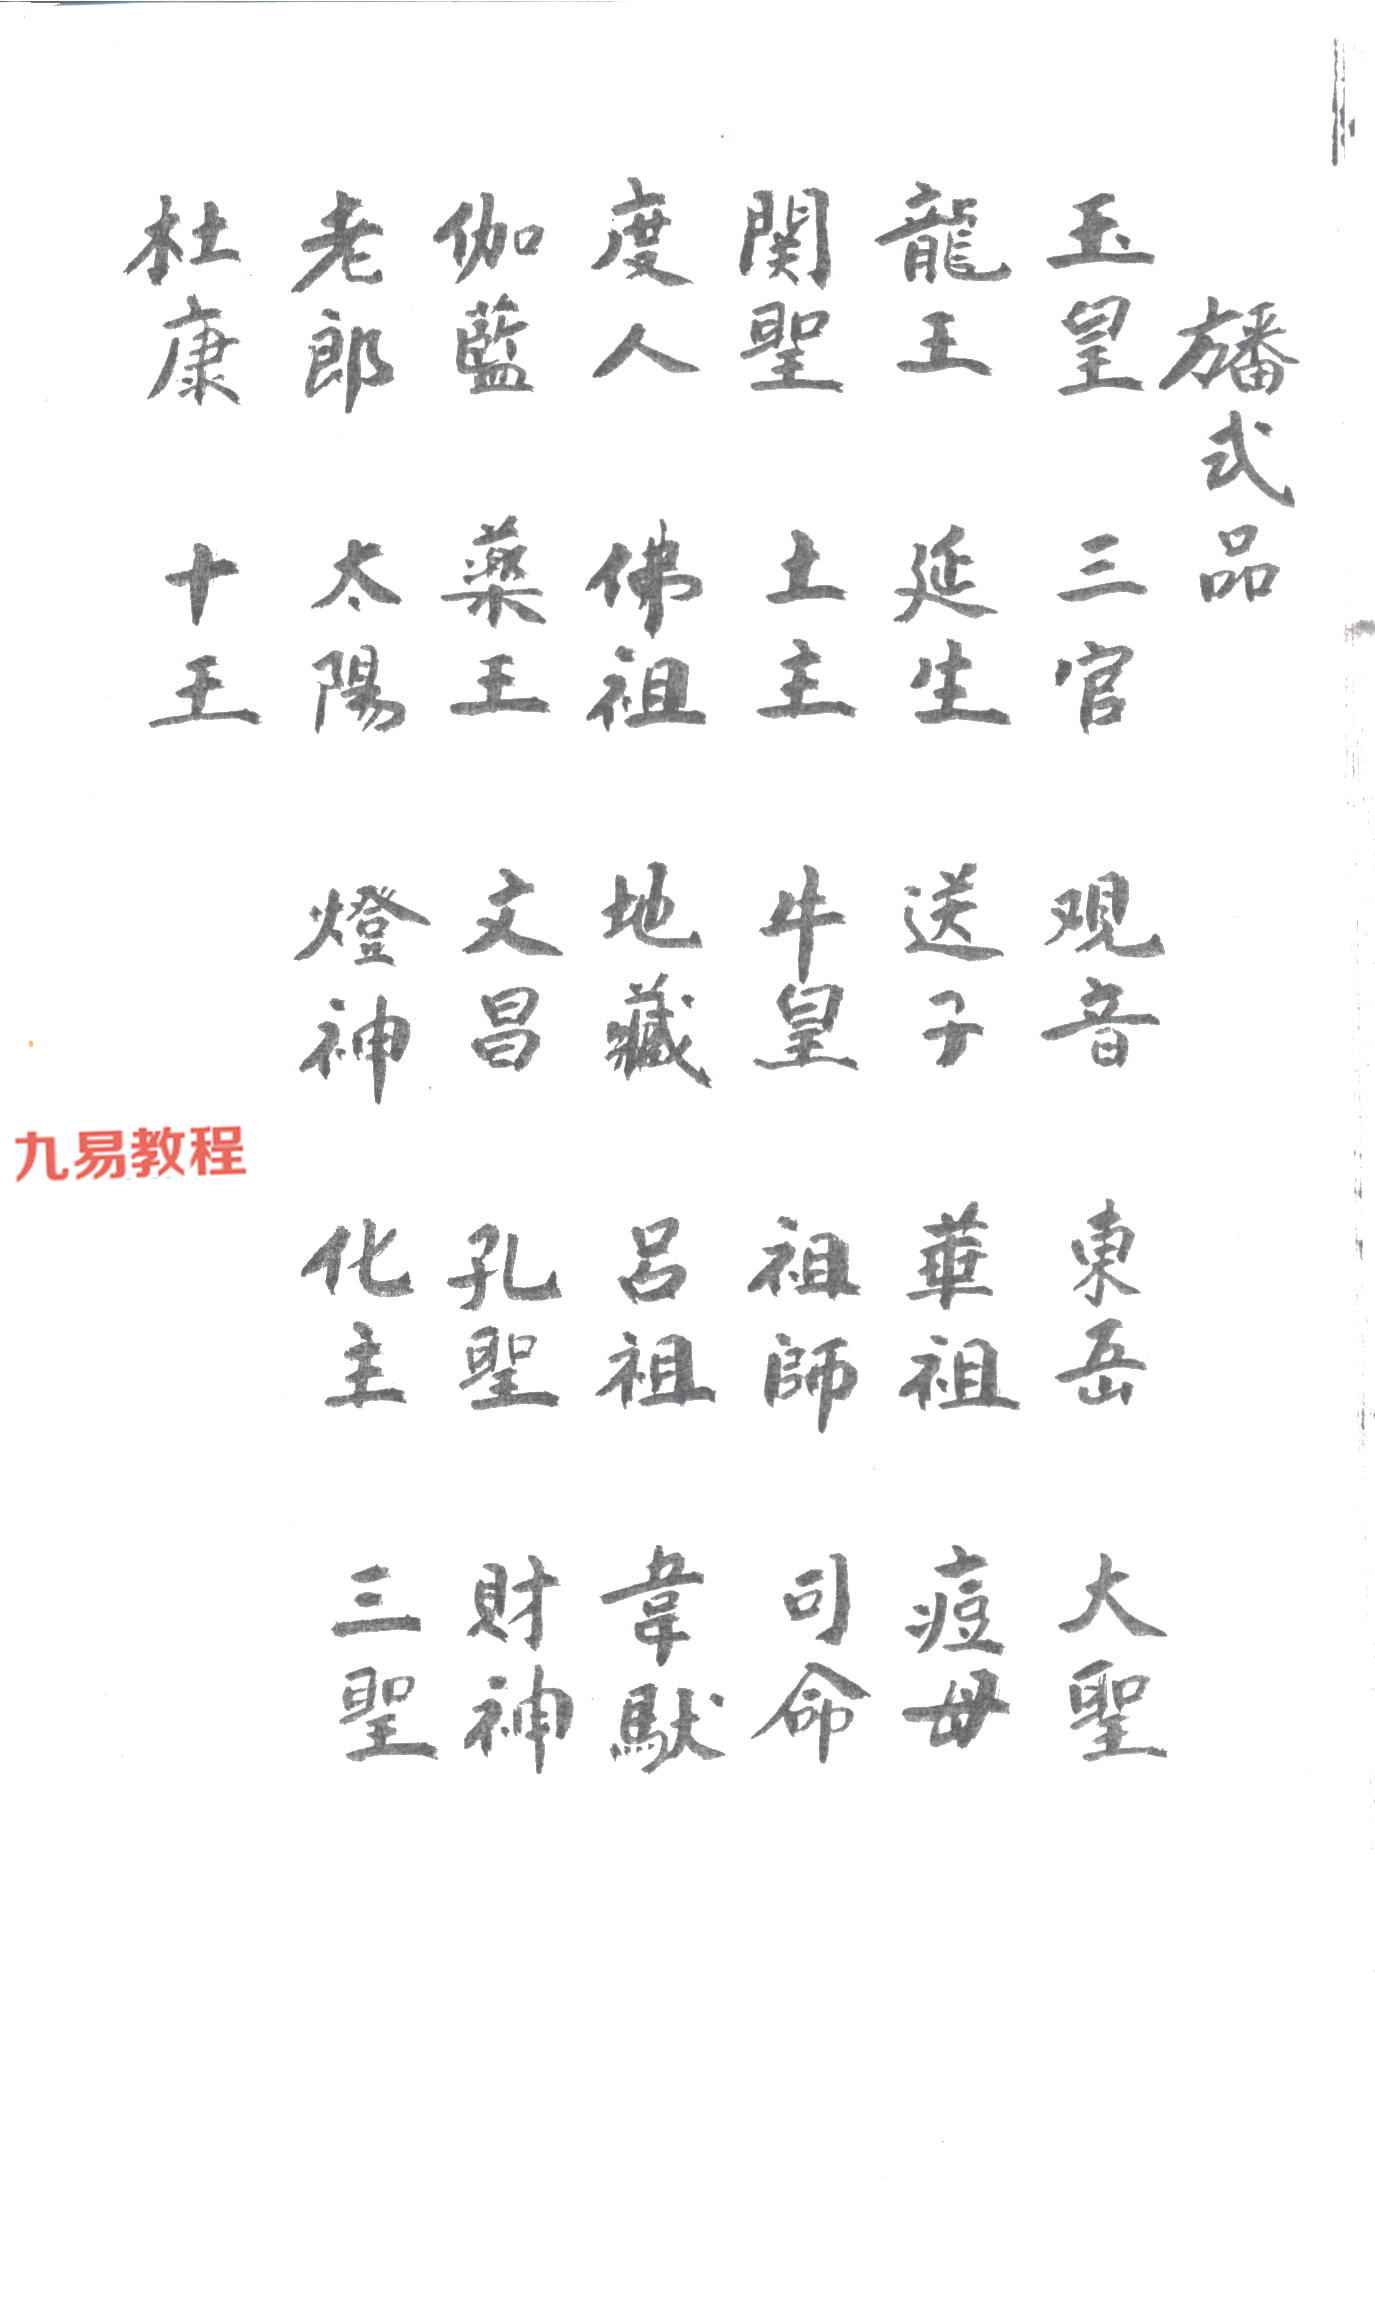 旛式品
玉皇 三官 观音 東岳 大聖
龍王 延生 送子 華祖 痘母
関聖 土主 牛皇 祖師 司命
度人 佛祖 地藏 呂祖 韋馱
伽藍 藥王 文昌 孔聖 財神
老郎 太陽 燈神 化主 三聖
杜康 十王
九易教程